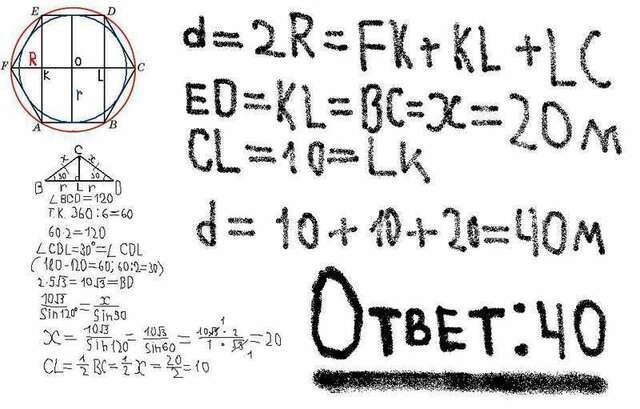 E D
R O
F K L C
r
A B
C
x x
30 30
B r L r D
∠BCD=120
Т.К. 360:6=60
60·2=120
∠CBL=30°=∠CDL
(180-120=60; 60:2=30)
2·5√3=10√3=BD
10√3/Sin120° = x/Sin30
X = 10√3/Sin120 = 10√3/Sin60 = 10√3·2/1·√3 = 20
CL=1/2 BC=1/2 X=20/2=10
d=2R=FK+KL+LC
ED=KL=BC=x=20м
CL=10=LK
d=10+10+20=40м
Ответ:40